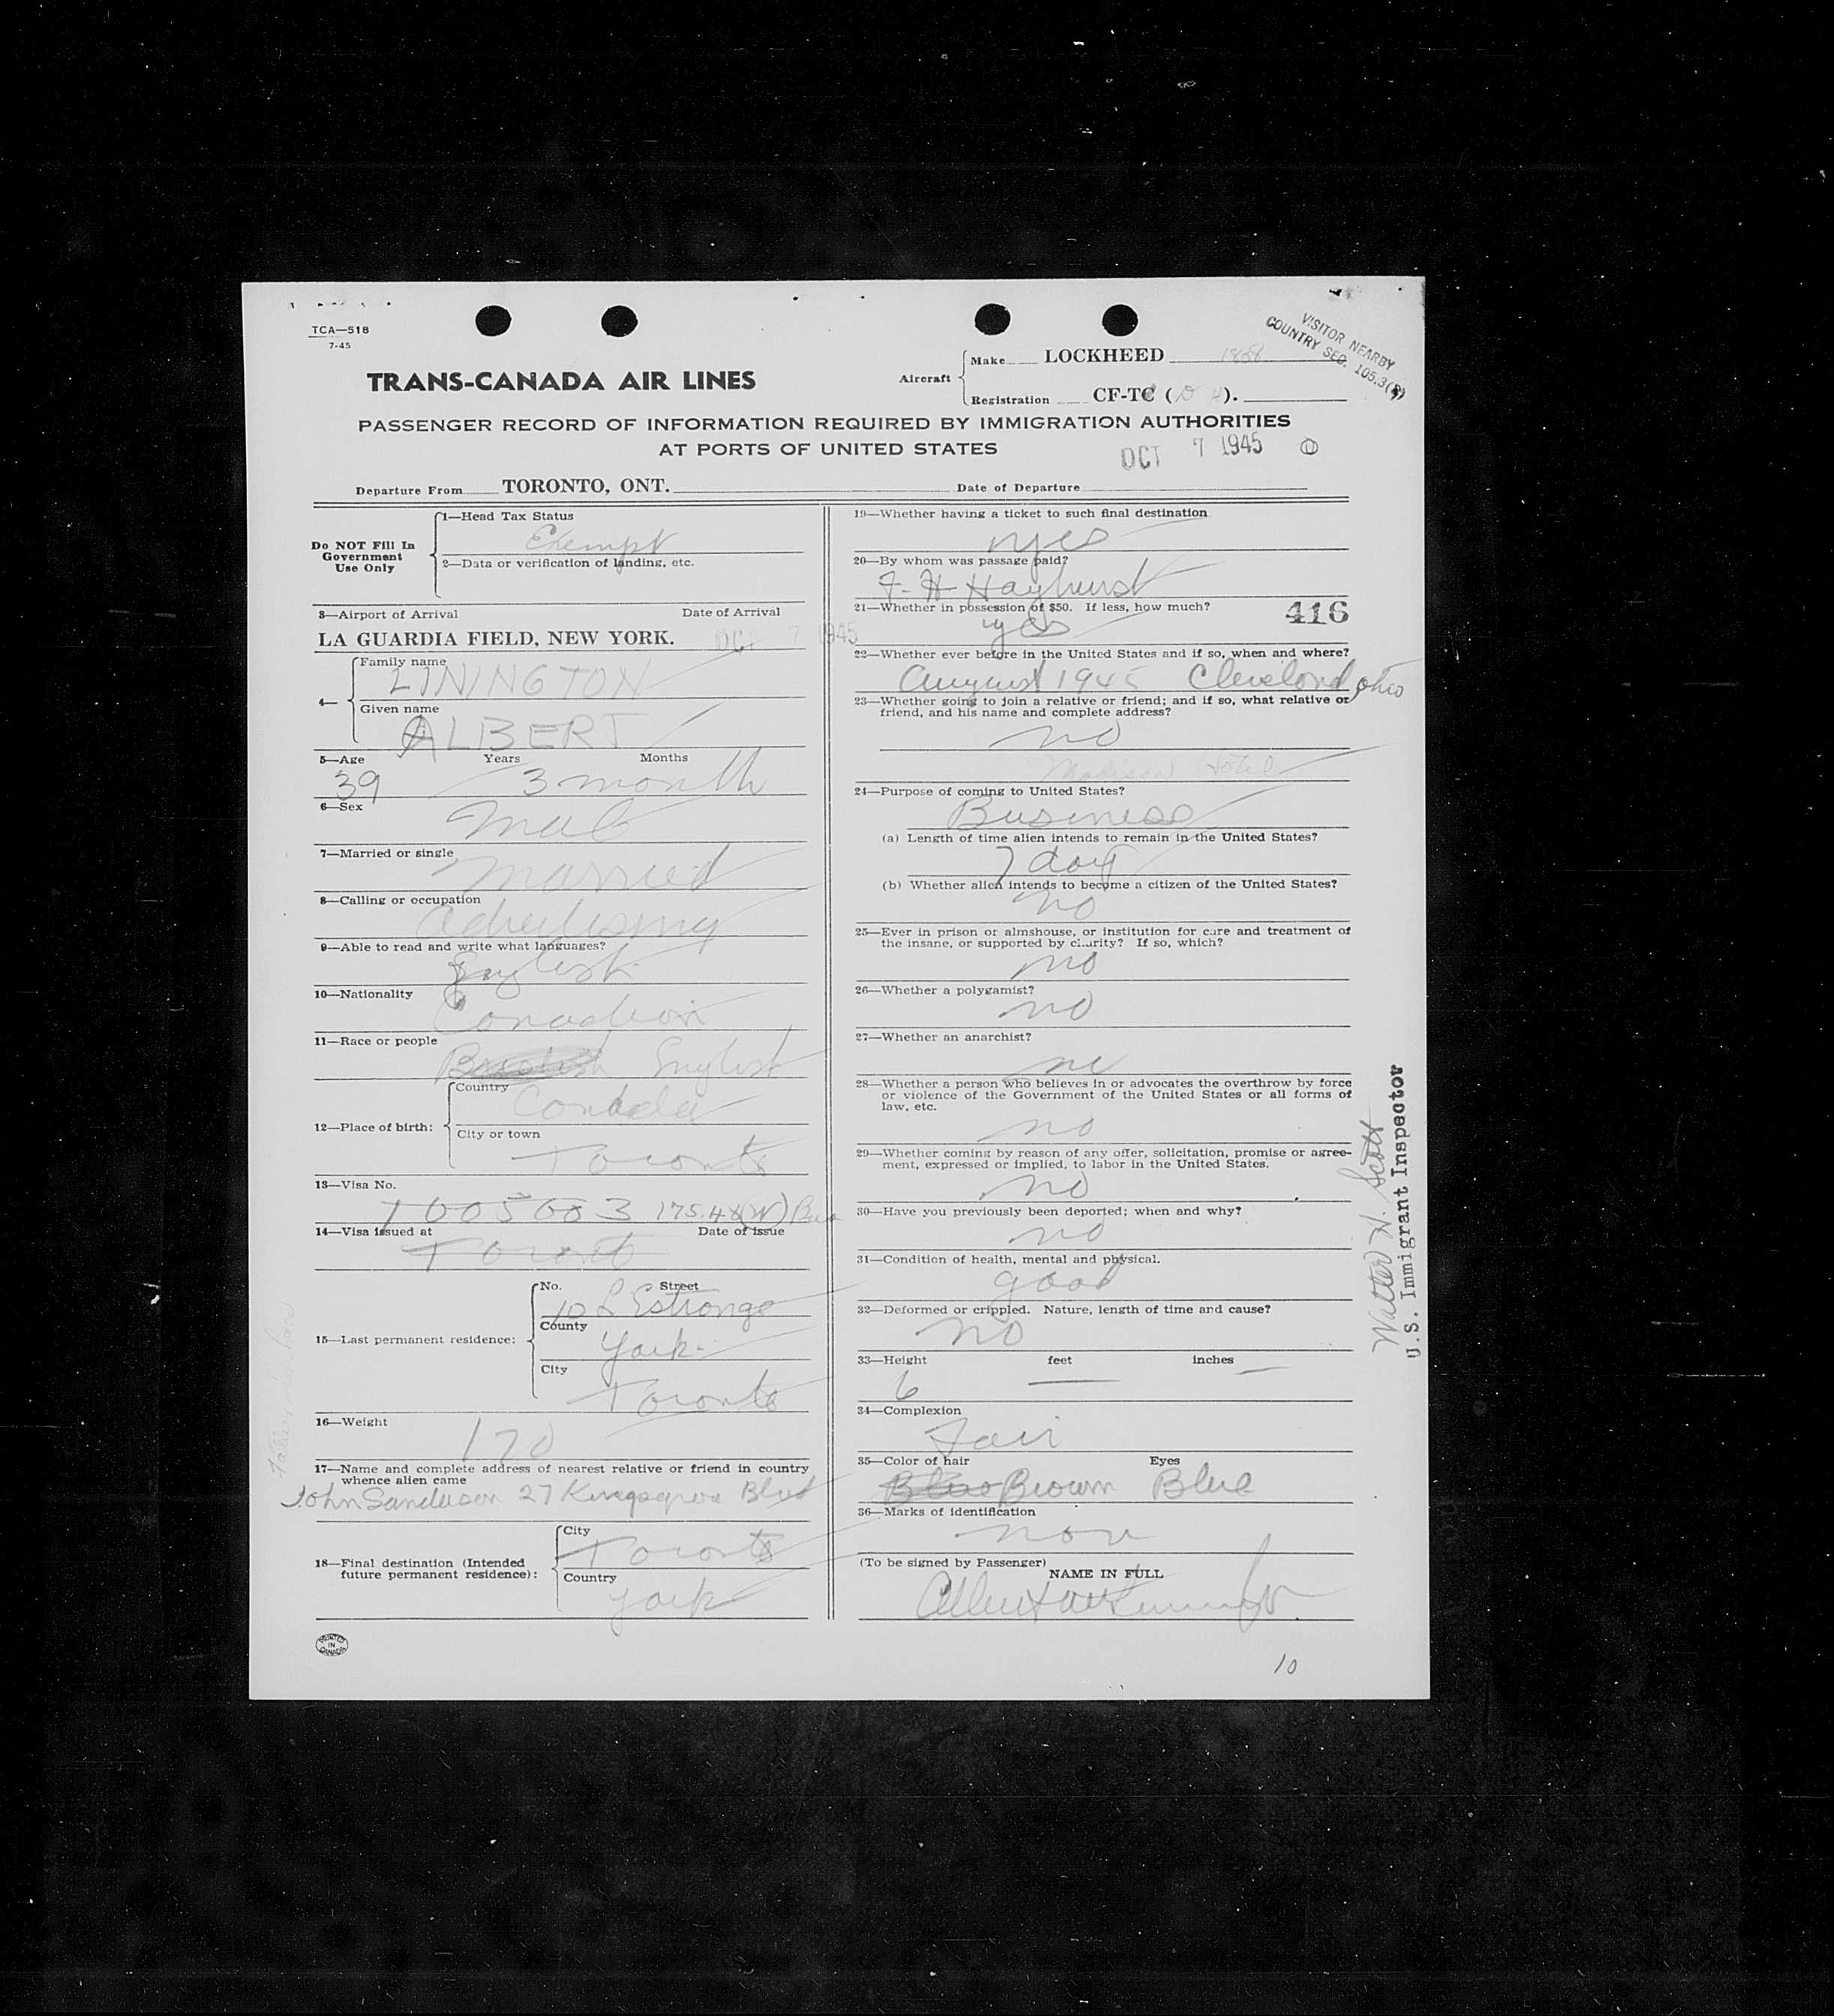 TCA—518
7-45
VISITOR NEARBY
COUNTRY SEC. 105.3(
TRANS-CANADA AIR LINES
Aircraft
Make LOCKHEED
Registration CF-TC ( ).
PASSENGER RECORD OF INFORMATION REQUIRED BY IMMIGRATION AUTHORITIES
AT PORTS OF UNITED STATES
OCT 7 1945
Departure From TORONTO, ONT.
Date of Departure
Do NOT Fill In
Government
Use Only
1—Head Tax Status
Exempt
2—Data or verification of landing, etc.
3—Airport of Arrival Date of Arrival
LA GUARDIA FIELD, NEW YORK. OCT 7 1945
4—
Family name
LININGTON
Given name
ALBERT
5—Age Years Months
39 3 month
6—Sex
Male
7—Married or single
Married
8—Calling or occupation
Advertising
9—Able to read and write what languages?
English
10—Nationality
Canadian
11—Race or people
British English
12—Place of birth:
Country
Canada
City or town
Toronto
13—Visa No.
1005603 175.48(W)
14—Visa issued at Date of issue
Toronto
15—Last permanent residence:
No. Street
10 L Estrange
County
York
City
Toronto
16—Weight
170
17—Name and complete address of nearest relative or friend in country
whence alien came
John Sanderson 27 Blvd
18—Final destination (Intended
future permanent residence):
City
Toronto
Country
York
PRINTED
IN
CANADA
19—Whether having a ticket to such final destination
yes
20—By whom was passage paid?
F. H Hayhurst
21—Whether in possession of $50. If less, how much?
yes
416
22—Whether ever before in the United States and if so, when and where?
August 1945 Cleveland, Ohio
23—Whether going to join a relative or friend; and if so, what relative or
friend, and his name and complete address?
no
Madison Hotel
24—Purpose of coming to United States?
Business
(a) Length of time alien intends to remain in the United States?
7 day
(b) Whether alien intends to become a citizen of the United States?
no
25—Ever in prison or almshouse, or institution for care and treatment of
the insane, or supported by charity? If so, which?
no
26—Whether a polygamist?
no
27—Whether an anarchist?
no
28—Whether a person who believes in or advocates the overthrow by force
or violence of the Government of the United States or all forms of
law, etc.
no
29—Whether coming by reason of any offer, solicitation, promise or agree-
ment, expressed or implied, to labor in the United States.
no
30—Have you previously been deported; when and why?
no
31—Condition of health, mental and physical.
good
32—Deformed or crippled. Nature, length of time and cause?
no
33—Height feet inches
6 — —
34—Complexion
Fair
35—Color of hair Eyes
Blue Brown Blue
36—Marks of identification
non
(To be signed by Passenger)
NAME IN FULL
10
Walter H. Scott
U.S. Immigrant Inspector